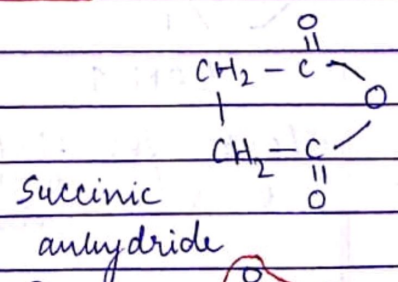 O
||
CH₂ – C
|
O
CH₂ – C
||
O
Succinic
anhydride
O